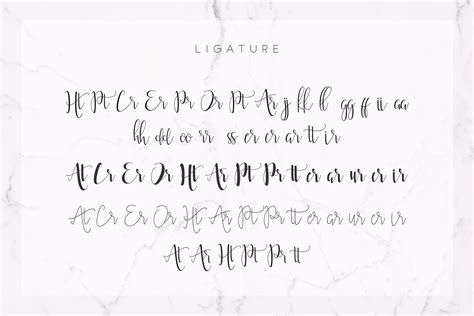 LIGATURE
Ht Pt Cr Er Pr Or Pt Ar jj kk ll gg ff ii aa
hh dd oo rr ss er cr ar tt ir
At Cr Er Or Ht Ar Pt Pr tt er ar ur cr ir
At Cr Er Or Ht Ar Pt Pr tt er ar ur cr ir
At Ar Ht Pt Pr tt